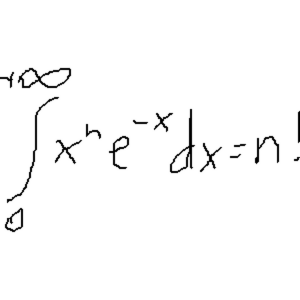 ∫₀⁺∞ xⁿ e⁻ˣ dx = n!